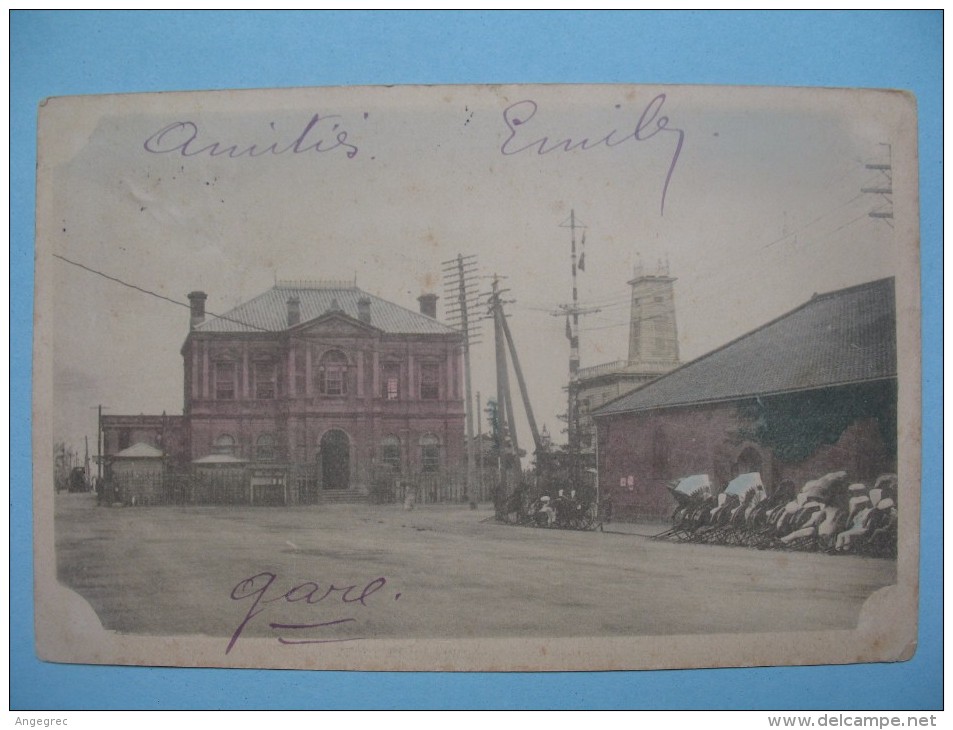 Amitiés. Emily.
gare.
Angegrec
www.delcampe.net